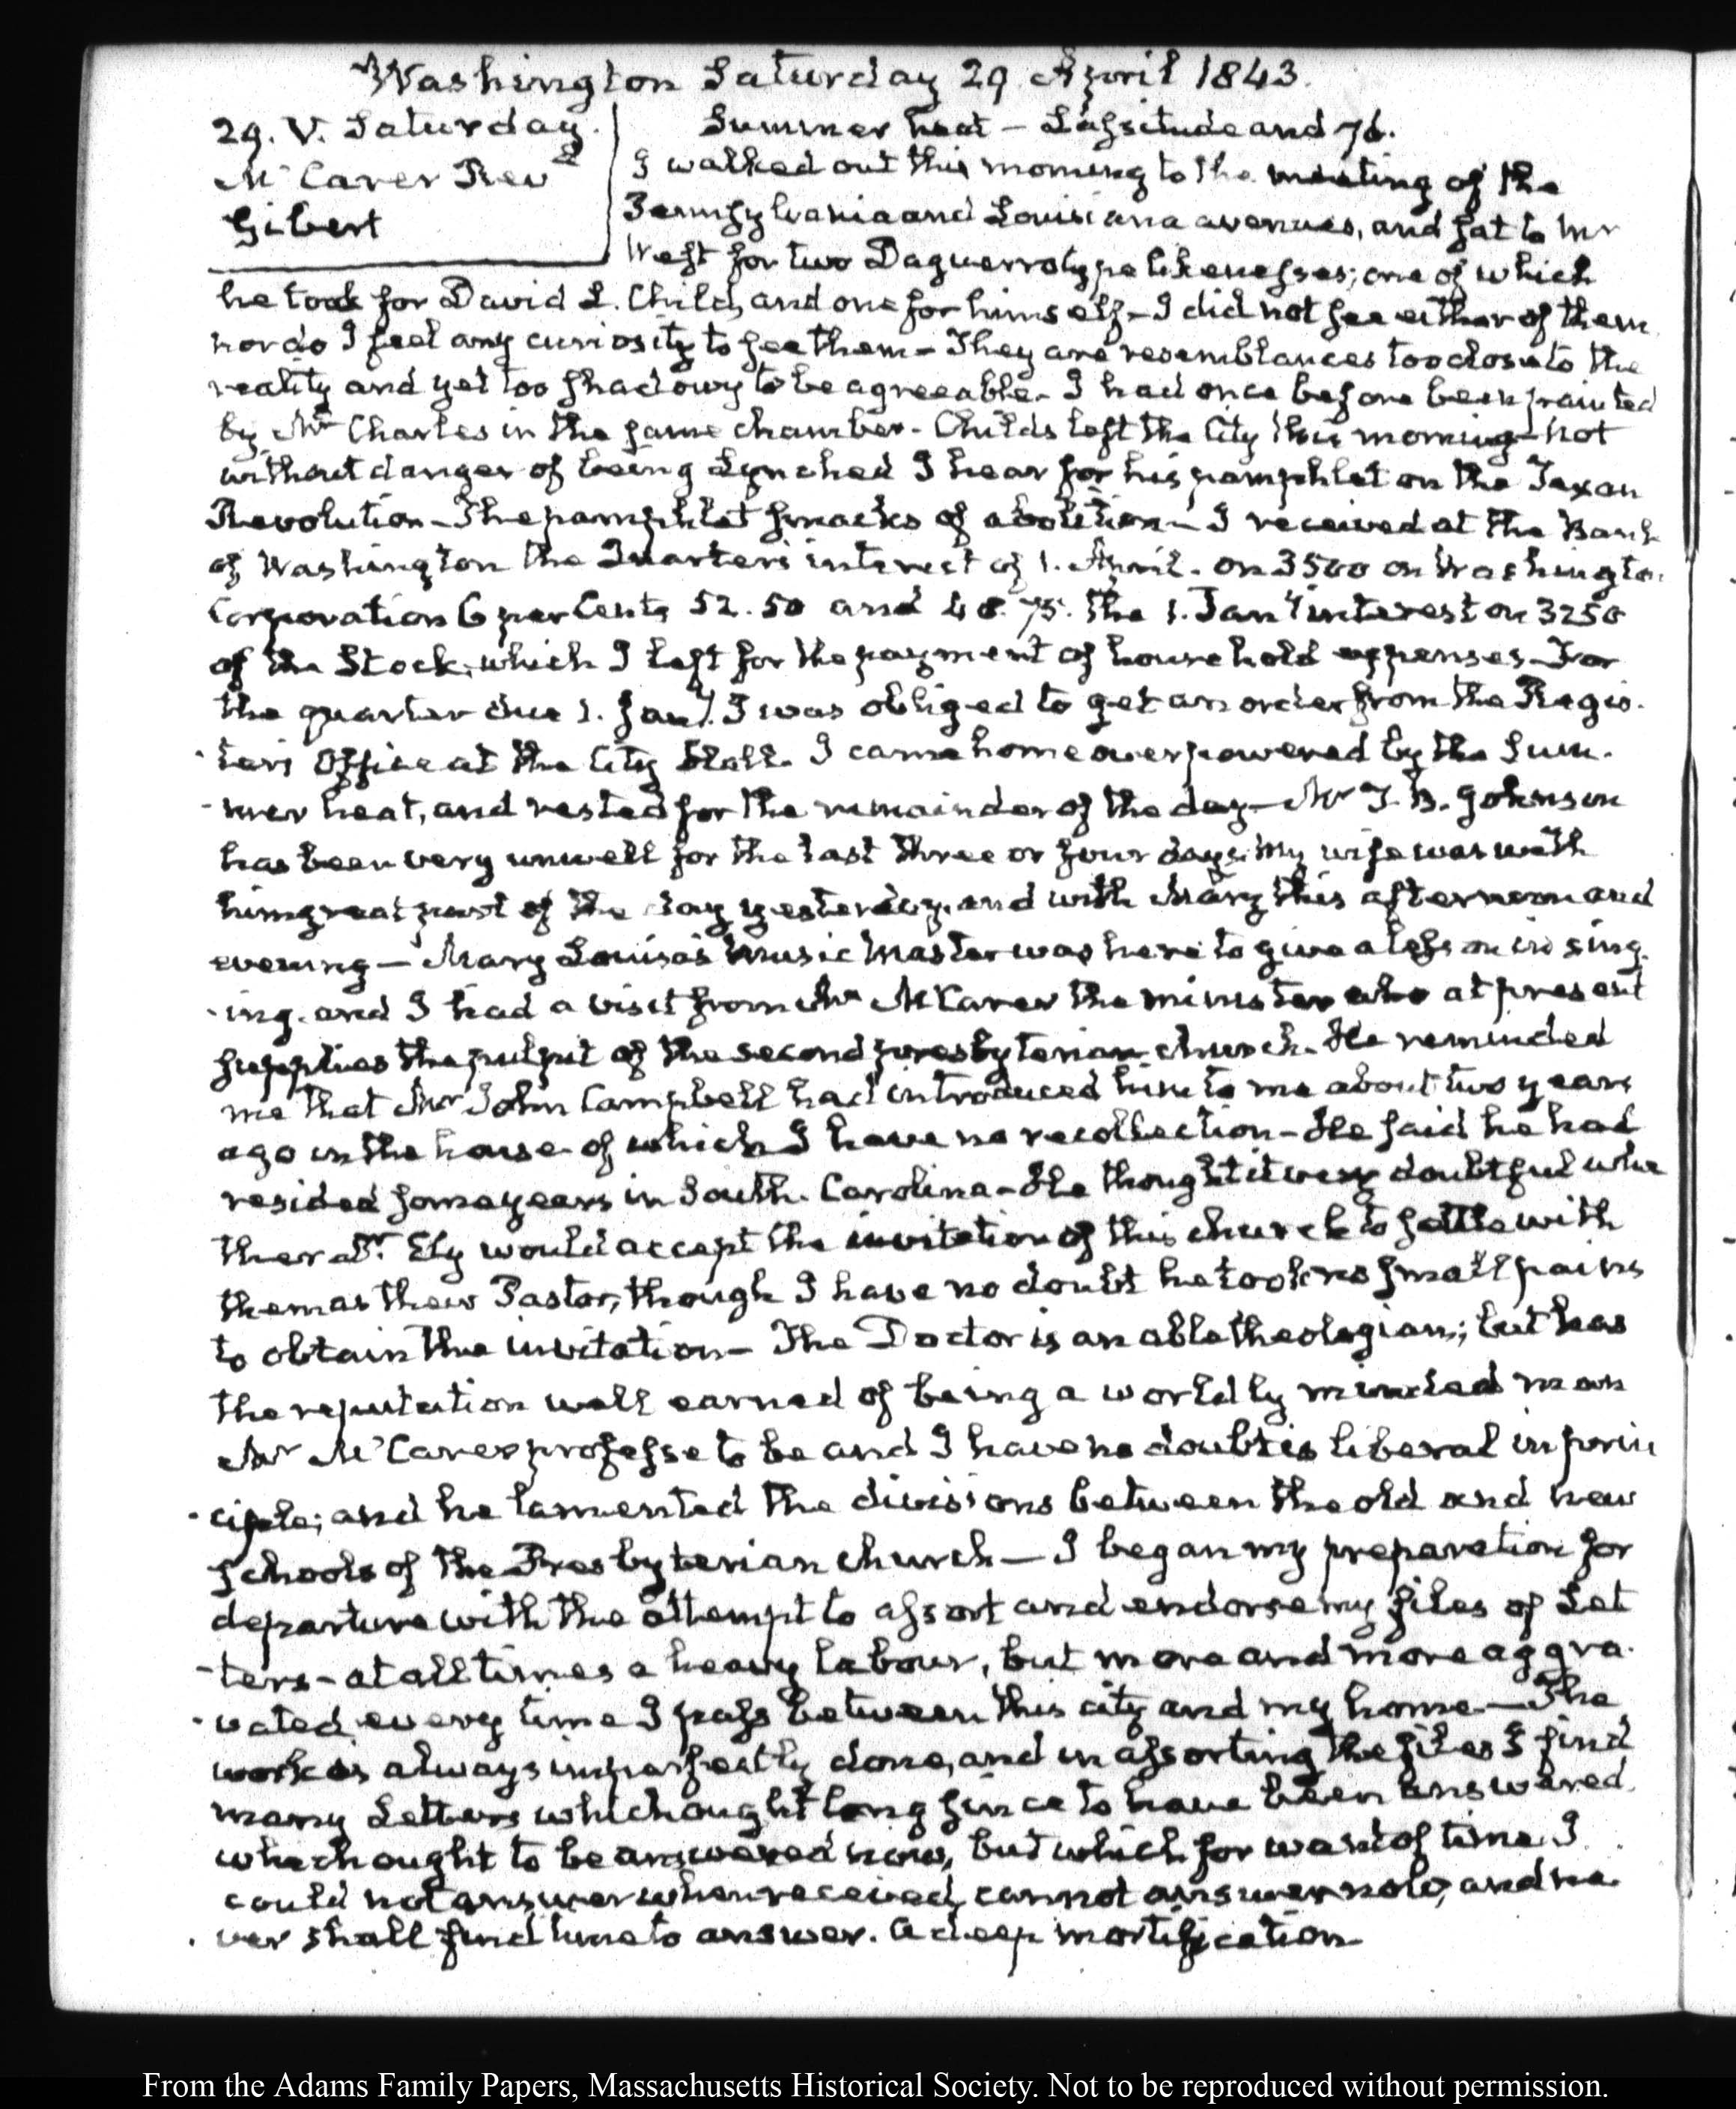 Washington Saturday 29. April 1843.
29. V. Saturday.
McCarer Revd
Gilbert
Summer heat – Lassitude and 76.
I walked out this morning to the meeting of the
Pennsylvania and Louisiana avenues, and sat to Mr
West for two Daguerrotype likenesses; one of which
he took for David L. Child, and one for himself – I did not see either of them
nor do I feel any curiosity to see them – They are resemblances too close to the
reality and yet too shadowy to be agreeable – I had once before been painted
by Mr Charles in the same chamber – Childs left the City this morning – not
without danger of being Lynched I hear for his pamphlet on the Texan
Revolution – The pamphlet smacks of abolition – I received at the Bank
of Washington the Quarter's interest of 1. April. on 3500 on Washington
Corporation 6 per Cents 52.50 and 48.75. the 1. Jany interest on 3250
of the Stock, which I left for the payment of household expenses – For
the quarter due 1. Jany. I was obliged to get an order from the Regis-
-ters Office at the City Hall. I came home overpowered by the Sum-
-mer heat, and rested for the remainder of the day – Mr T. B. Johnson
has been very unwell for the last three or four days; my wife was with
him great part of the day yesterday, and with Mary this afternoon and
evening – Mary Louisa's Music Master was here to give a lesson in sing-
-ing. and I had a visit from Mr McCarer the minister who at present
supplies the pulpit of the second presbyterian church. He reminded
me that Mr John Campbell had introduced him to me about two years
ago in the house of which I have no recollection – He said he had
resided some years in South Carolina – He thought it very doubtful whe
ther Dr. Ely would accept the invitation of this church to settle with
them as their Pastor, though I have no doubt he took no small pains
to obtain the invitation – The Doctor is an able theologian; but has
the reputation well earned of being a worldly minded man
Mr McCarer professe to be and I have no doubt is liberal in prin
-ciple; and he lamented the divisions between the old and new
schools of the Presbyterian church – I began my preparation for
departure with the attempt to assort and endorse my files of Let
-ters – at all times a heavy labour, but more and more aggra-
-vated every time I pass between this city and my home – The
work is always imperfectly done, and in assorting the files I find
many Letters which ought long since to have been answered
which ought to be answered now, but which for want of time I
could not answer when received, cannot answer now, and ne-
-ver shall find time to answer. A deep mortification
From the Adams Family Papers, Massachusetts Historical Society. Not to be reproduced without permission.